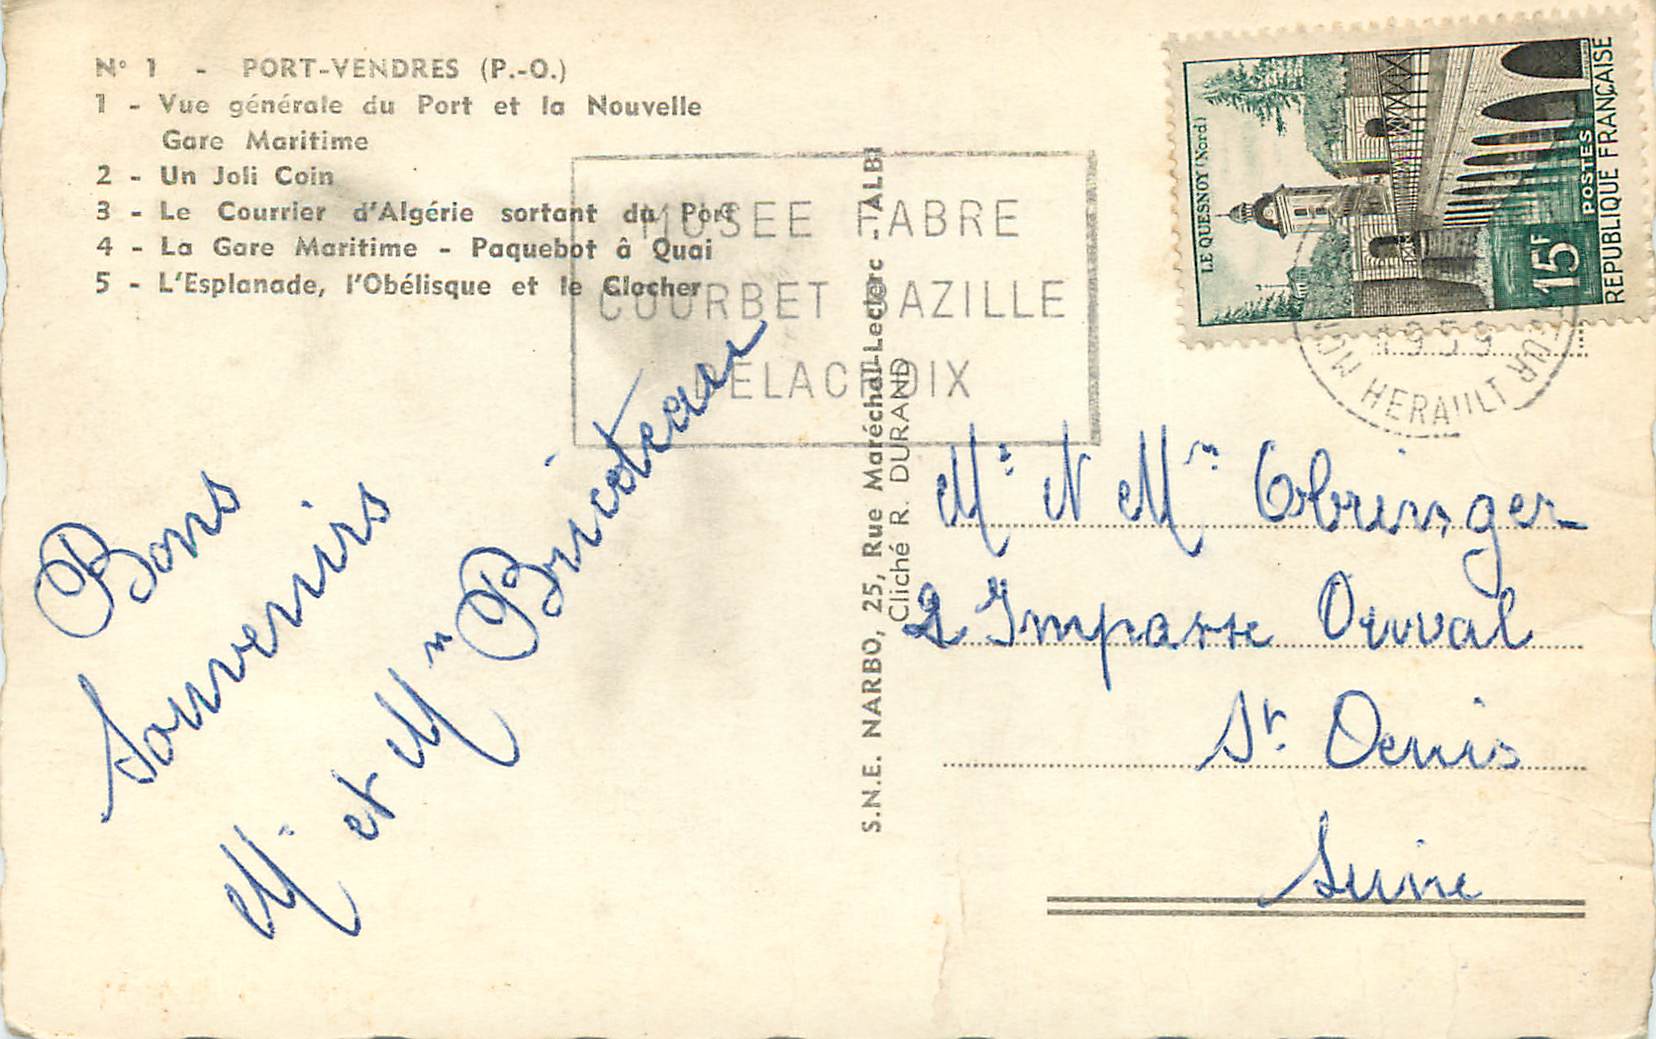 N° 1 - PORT-VENDRES (P.-O.)
1 - Vue générale du Port et la Nouvelle
Gare Maritime
2 - Un Joli Coin
3 - Le Courrier d'Algérie sortant du Port
4 - La Gare Maritime - Paquebot à Quai
5 - L'Esplanade, l'Obélisque et le Clocher
MUSEE FABRE
COURBET BAZILLE
DELACROIX
Bons
Souvenirs
Mr et Mm Bricoteau
S.N.E. NARBO, 25, Rue Maréchal-Leclerc - ALBI
Cliché R. DURAND
LE QUESNOY (Nord)
15F
POSTES
REPUBLIQUE FRANÇAISE
1959
HERAULT
Mr Mm
2 Impasse
St Denis
Seine